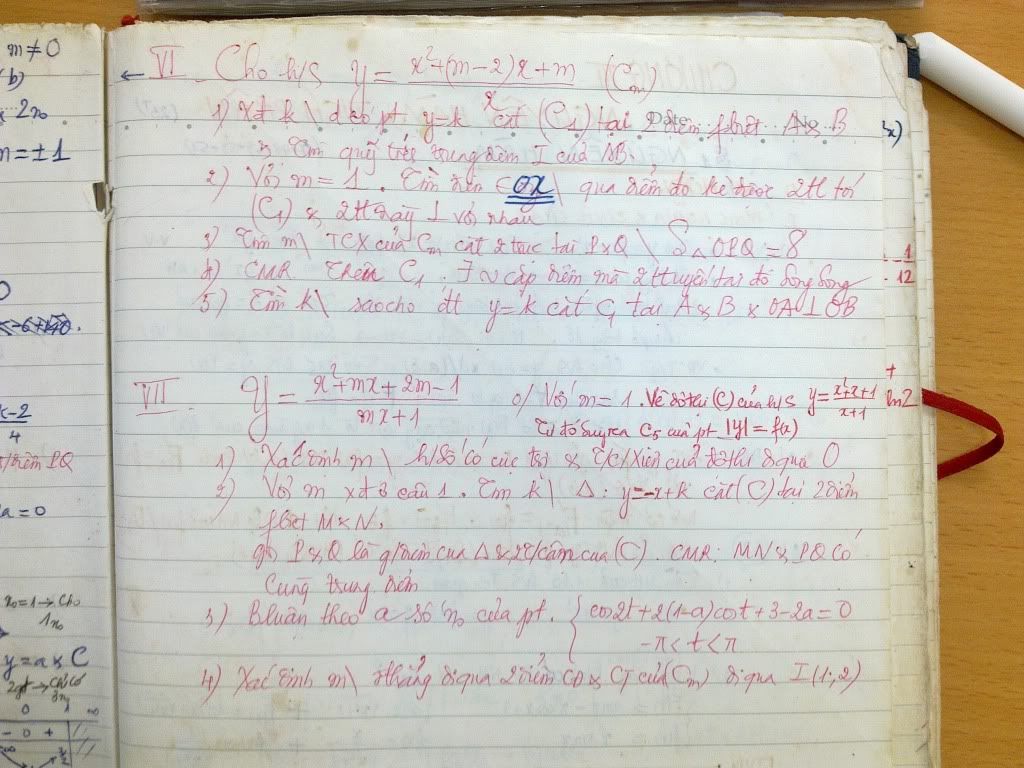 m≠0
b)
2x₀
m = ±1
k-2
4
điểm PQ
a = 0
x₀=1 → cho
1x₀
y=a & C
0 1 ∞
- 0 +
VI Cho h/s y = x²+(m-2)x+m / x (Cm)
1) Xđ k \ đồ pt y=k cắt (C₁) tại 2 điểm fbiệt A & B
& Tìm quỹ tích trung điểm I của AB.
2) Với m=1. Tìm điểm ∈ OX \ qua điểm đó kẻ được 2tt tới
(C₁) & 2tt này ⊥ với nhau
3) Tìm m \ TCX của Cm cắt 2 trục tại P & Q \ S△OPQ = 8
4) CMR Trên C₁ ∃ ∞ cặp điểm mà 2 ttuyến tại đó song song
5) Tìm k \ sao cho đt y=k cắt C₁ tại A & B & OA⊥OB
Date No
VII y = x²+mx+2m-1 / mx+1
0/ Với m=1. Vẽ đồ thị (C) của h/s y = x²+x+1 / x+1
Từ đó suy ra C₅ của pt |y| = f(x)
1) Xác định m \ h/số có cực trị & T/C/Xiên của đồ thị điqua O
2) Với m xđ ở câu 1. Tìm k \ Δ: y=-x+k cắt (C) tại 2 điểm
fbiệt M & N.
gọi P & Q là g/điểm của Δ & 2T/cận của (C). CMR: MN & PQ có
cùng trung điểm
3) Bluận theo a số n₀ của pt. { cos2t+2(1-a)cost+3-2a=0
-π<t<π
4) Xác định m \ đthẳng điqua 2 điểm CĐ & CT của (Cm) điqua I(1;2)
ln2